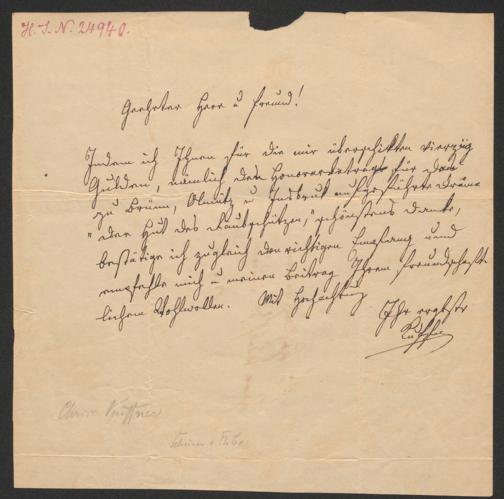 H. I. N. 24940.
Geehrter Herr u Freund!
Indem ich Ihnen für die mir überschikten vierzig
Gulden, nämlich den Honorarbetrag für das
zu Brünn, Olmütz u Insbruk aufgeführte Drama
"der Hut des Landschützen," schönstens danke,
bestätige ich zugleich den richtigen Empfang und
empfehle mich u meinen Beitrag Ihrem freundschaft-
lichen Wohlwollen. Mit Hochachtung
Ihr ergbster
Kuffner
Kuffner